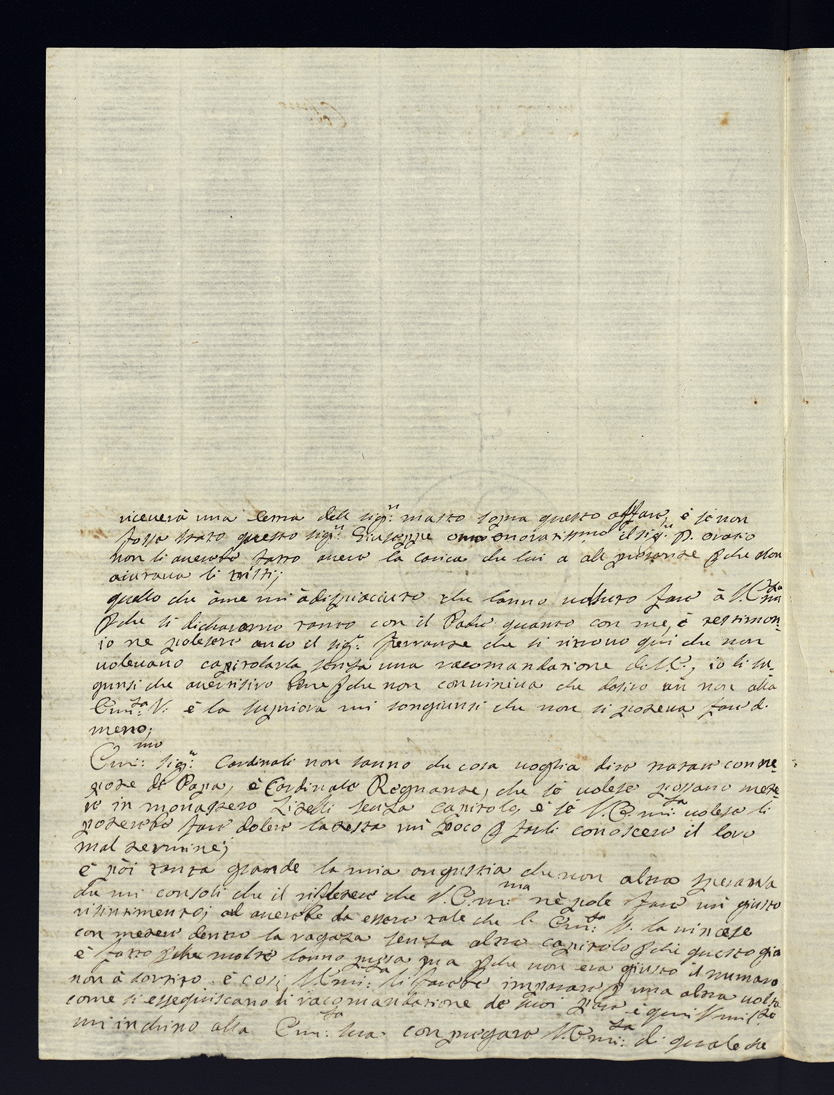 riceverà una lettera dell sig.r masto sopra questo affare, è se non
fosse stato questo sig.r Giuseppe onoratissimo il sig.r P.
non li averebe fatto avere la carica che lui a al presente p che non
aiutava li tristi;
quello che à me mi à dispiaciuto che hanno voluto fare à V. Em.za
p che si dichararno tanto con il Padre quanto con me, è testimon:
io ne potese anco il sig.r Ferrante che si ritrova qui che non
volevano capitolarla senza una racomandazione di V.E., io li su
gunsi che avertisero bene p che non conveniva che dasero un non alla
Em.za V. è la supriora mi songiunsi che non si poteva fare di
meno;
Em.mo sig.r Cardinali non sanno che cosa voglia dire tratare con ne:
pote di Papa, è Cardinale Regnante, che se volese possano mete
re in monastero Zitelli senza capitolo, è se V. Em.za volese li
poterebe fare dolere la testa un poco p farli conoscere il loro
mal termine;
è poi tanta grande la mia angustia che non altra speranza
che mi consoli che il riflettere che V. Em.ma nè pole fare un giusto
risintimento; al averebe da essere tale che le Em.za V. la vincese
con metere dentro la ragaza senza altro capitolo p che questo già
è fatto p che molte hanno messa ma p che non era giusto il numaro
non à sortito. è così V. Em.za li farebe imparare p una altra volta
come si esseguiscano li racomandazione de suoi pari è quivi
mi inchino alla Em.za sua con pregare V. Em.za di qualche